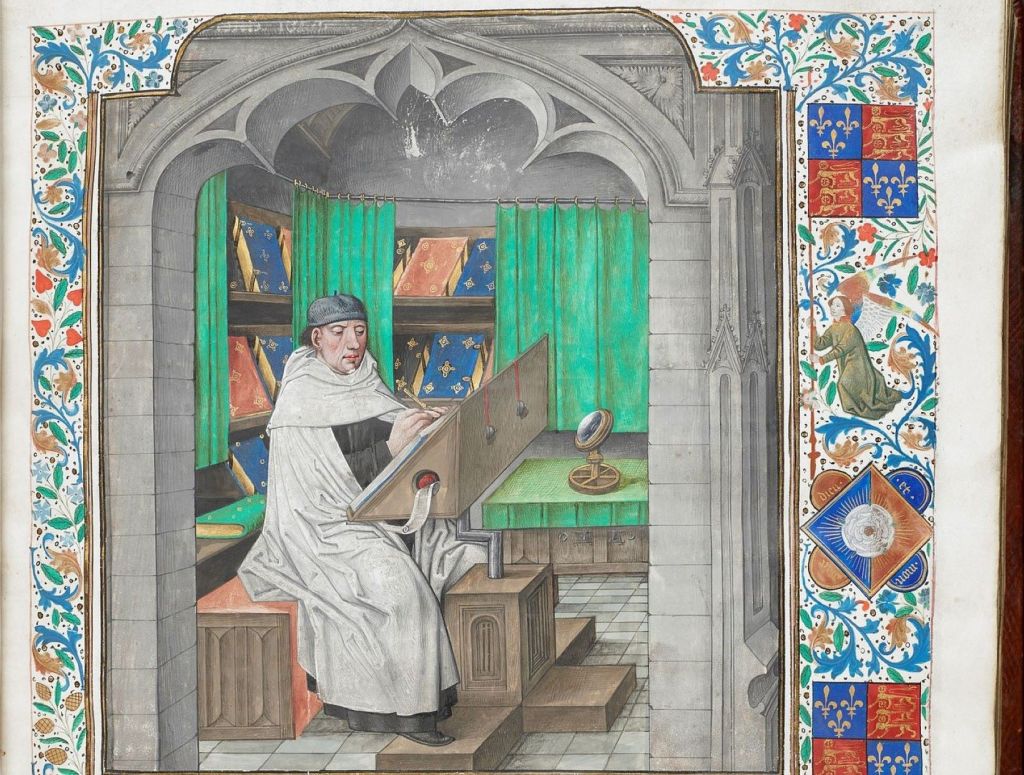 dieu
·et·
mon